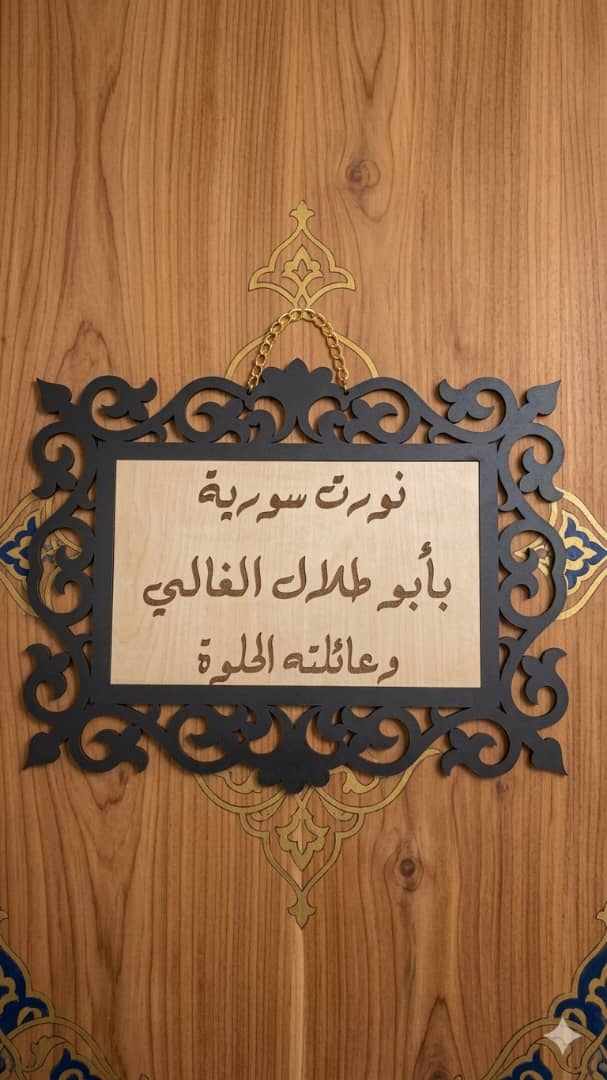 نورت سورية
بأبو طلال الغالي
وعائلته الحلوة